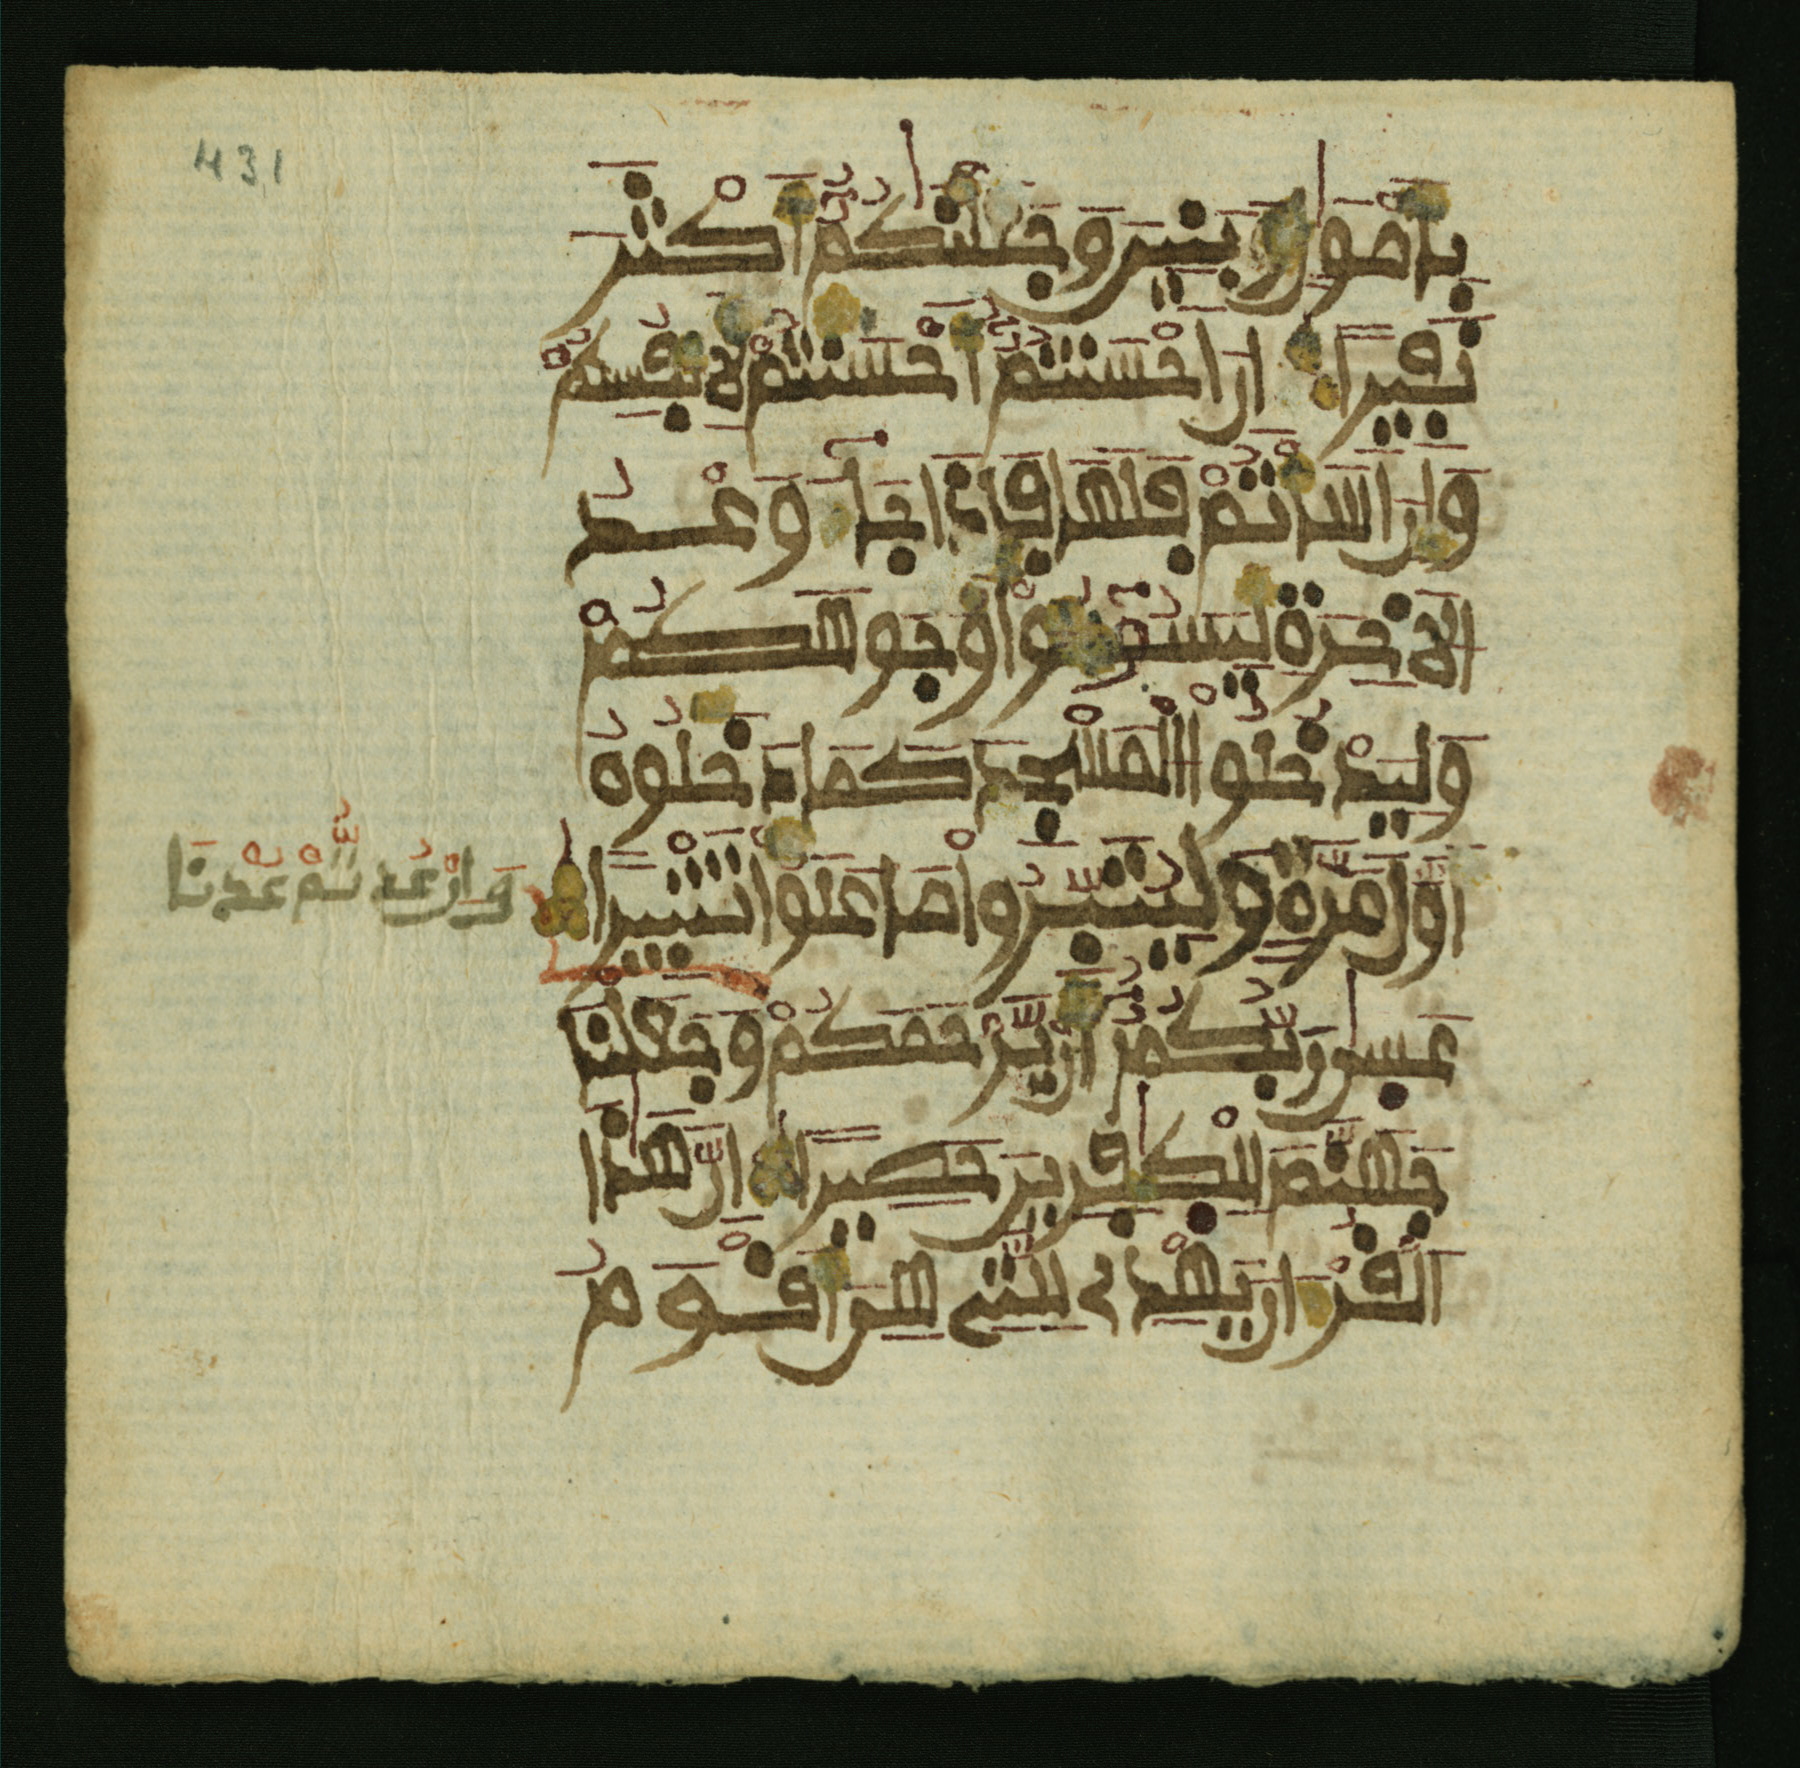 431
بأمول وبنين وجعلنكم أكثر
نفيرا إن أحسنتم أحسنتم لأنفسكم
وإن أسأتم فلها فإذا جاء وعد
الأخرة ليسوءوا وجوهكم
وليدخلوا المسجد كما دخلوه
أول مرة وليتبروا ما علوا تتبيرا
وإن عدتم عدنا
عسى ربكم أن يرحمكم وجعلنا
جهنم للكفرين حصيرا إن هذا
القرءان يهدي للتي هي أقوم